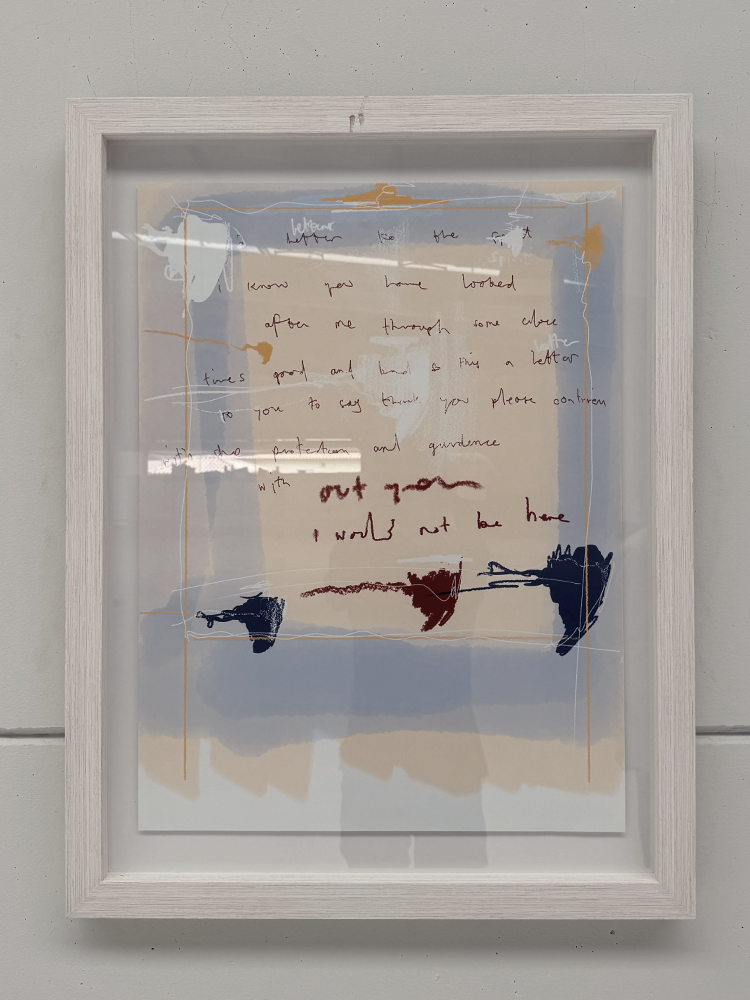 letter
letter to the spirit
I know you have looked
after me through some close
letter
times good and bad so this a letter
to you to say thank you please
with the protection and guidence
with out you
I would not be here